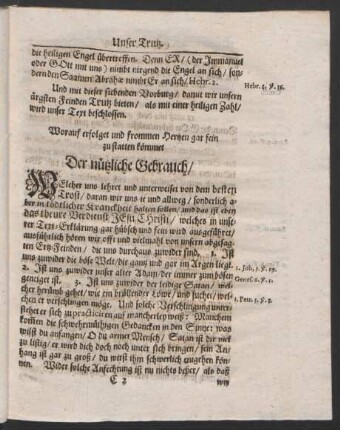 Unser Trutz.
die heiligen Engel übertreffen. Denn ER/ (der Immanuel
oder GOtt mit uns) nimbt nirgend die Engel an sich/ son-
dern den Saamen Abrahæ nimbt Er an sich/ Hebr. 2.
Hebr. 2. ℣. 16.
Und mit dieser siebenden Vorburg/ damit wir unsern
ärgsten Feinden Trutz bieten/ als mit einer heiligen Zahl/
wird unser Text beschlossen.
Worauf erfolget und frommen Hertzen gar fein
zu statten kömmet
Der nützliche Gebrauch/
WElcher uns lehret und unterweiset von dem besten
Trost/ daran wir uns ie und allweg/ sonderlich a-
ber in tödtlicher Kranckheit halten sollen/ und das ist eben
das theure Verdienst JEsu Christi/ welches in unse-
rer Text-Erklärung gar hübsch und fein wird ausgeführet/
ausführlich hören wir oft und vielmahl von unsern abgesag-
ten Ertz-Feinden/ die uns durchaus zuwider sind. 1. Ist
uns zuwider die böse Welt/ die gantz und gar im Argen liegt.
1. Joh. 5. ℣. 19.
2. Ist uns zuwider unser alter Adam/ der immer zum bösen
geneiget ist. 3. Ist uns zuwider der leidige Satan/ wel-
Genes. 8. ℣.
cher herümb gehet/ wie ein brüllender Löwe/ und suchet/ wel-
1. Petr. 5. ℣. 8.
chen er verschlingen möge. Und solche Verschlingung unter-
stehet er sich zu practiciren auf mancherley weis: Manchem
kommen die schwehrmühtigen Gedancken in den Sinn: was
wilst du anfangen/ O du armer Mensch/ Satan ist dir viel
zu listig/ er wird dich doch noch unter sich bringen/ sein An-
hang ist gar zu groß/ du wirst ihm schwerlich entgehen kön-
nen. Wider solche Anfechtung ist nu nichts besser/ als daß
C 2
wir